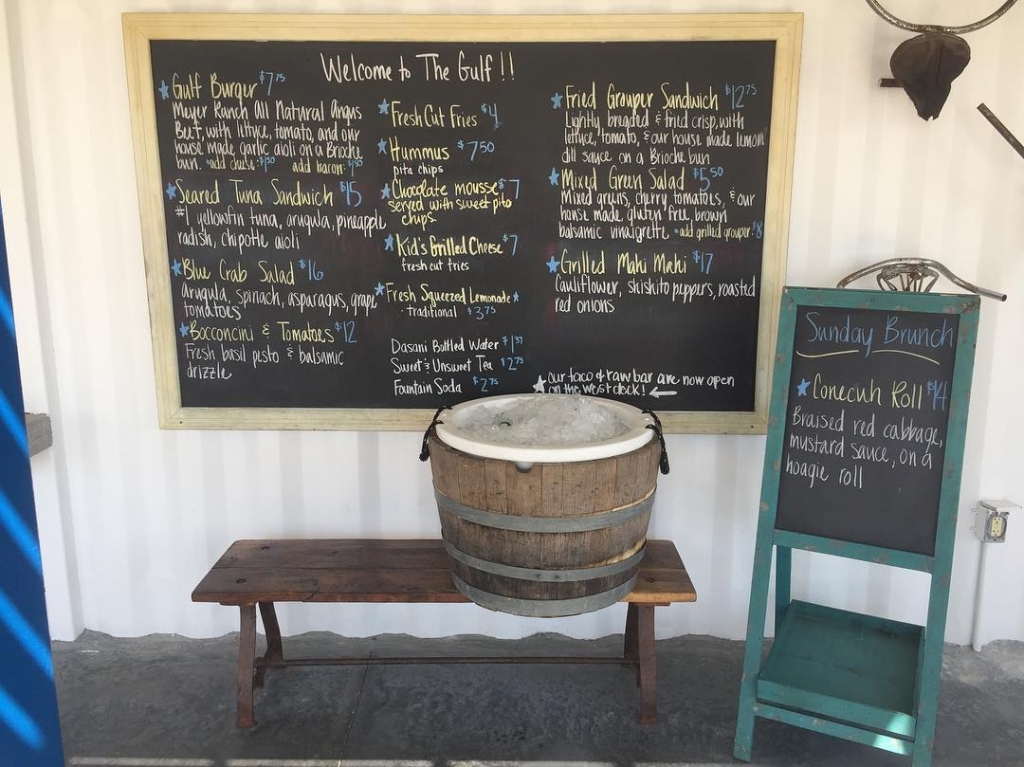 Welcome to The Gulf!!
Gulf Burger $7.75
Meyer Ranch All Natural Angus
Beef, with lettuce, tomato, and our
house made garlic aioli on a Brioche
bun. add cheese add bacon
Seared Tuna Sandwich $15
#1 yellowfin tuna, arugula, pineapple
radish, chipotle aioli
Blue Crab Salad $16
Arugula, spinach, asparagus, grape
tomatoes
Bocconcini & Tomatoes $12
Fresh basil pisto & balsamic
drizzle
Fresh Cut Fries $4
Hummus $7.50
pita chips
Chocolate mousse $7
served with sweet pita
chips
Kid's Grilled Cheese $7
fresh cut fries
Fresh Squeezed Lemonade
traditional $3.75
Dasani Bottled Water
Sweet & Unsweet Tea $2.75
Fountain Soda $2.75
Fried Grouper Sandwich $12.75
Lightly breaded & fried crisp, with
lettuce, tomato, & our house made lemon
dill sauce on a Brioche bun
Mixed Green Salad $5.50
Mixed greens, cherry tomatoes, & our
house made gluten free, brown
balsamic vinaigrette. add grilled grouper $8
Grilled Mahi Mahi $17
Cauliflower, shishito peppers, roasted
red onions
our taco & raw bar are now open
on the west dock!
Sunday Brunch
Conecuh Roll $14
Braised red cabbage,
mustard sauce, on a
hoagie roll